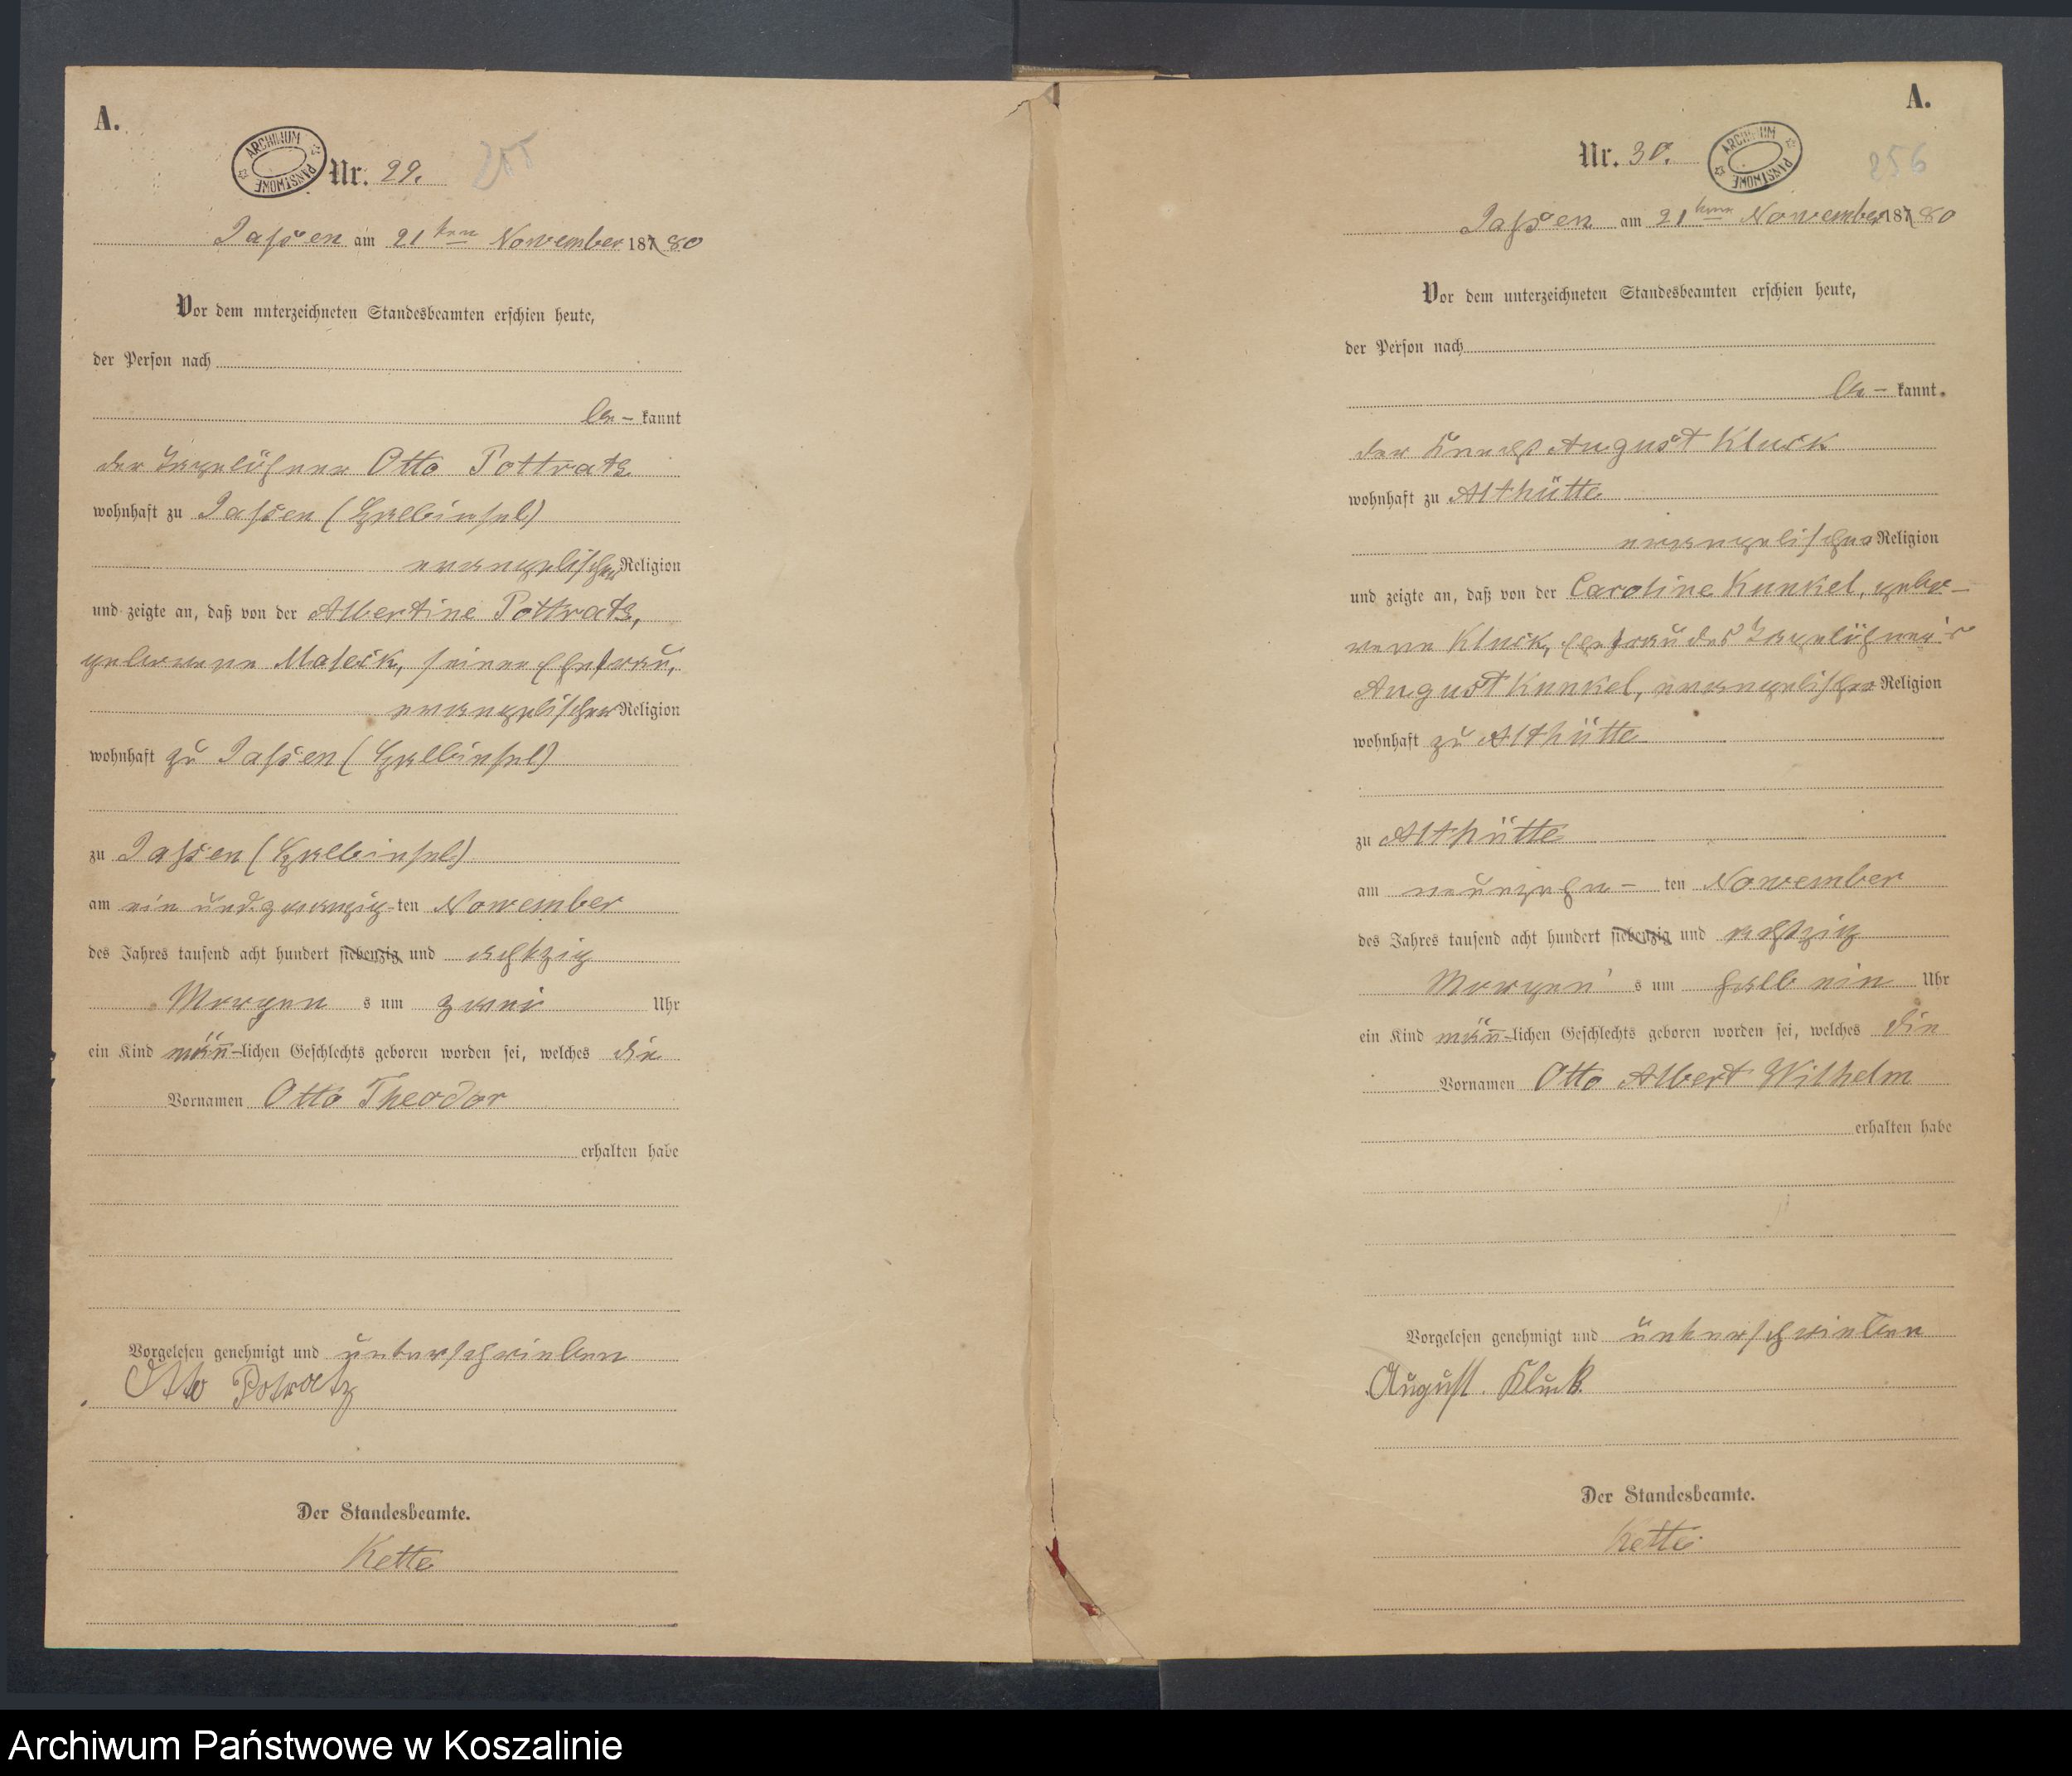 A.
ARCHIWUM PAŃSTWOWE
Nr. 29.
255
Jassen am 21ten November 187 80
Vor dem unterzeichneten Standesbeamten erschien heute,
der Person nach
be- kannt
der Tagelöhner Otto Pottratz
wohnhaft zu Jassen (Halbinsel)
evangelischer Religion
und zeigte an, daß von der Albertine Pottratz,
geborene Maseck, seiner Ehefrau,
evangelischer Religion
wohnhaft zu Jassen (Halbinsel)
zu Jassen (Halbinsel)
am ein und zwanzig-ten November
des Jahres tausend acht hundert siebenzig und achtzig
Morgen s um zwei Uhr
ein Kind männ-lichen Geschlechts geboren worden sei, welches die
Vornamen Otto Theodor
erhalten habe
Vorgelesen genehmigt und unterschrieben
Otto Potratz
Der Standesbeamte.
Kette
A.
Nr. 30.
ARCHIWUM PAŃSTWOWE
256
Jassen am 21ten November 187 80
Vor dem unterzeichneten Standesbeamten erschien heute,
der Person nach
be- kannt.
der Knecht August Kluck
wohnhaft zu Althütte
evangelischer Religion
und zeigte an, daß von der Caroline Kunkel, gebo-
rene Kluck, Ehefrau des Tagelöhner's
August Kunkel, evangelischer Religion
wohnhaft zu Althütte
zu Althütte
am neunzehn- ten November
des Jahres tausend acht hundert siebenzig und achtzig
Morgen' s um halb ein Uhr
ein Kind männ-lichen Geschlechts geboren worden sei, welches die
Vornamen Otto Albert Wilhelm
erhalten habe
Vorgelesen genehmigt und unterschrieben
August Kluck
Der Standesbeamte.
Kette
Archiwum Państwowe w Koszalinie